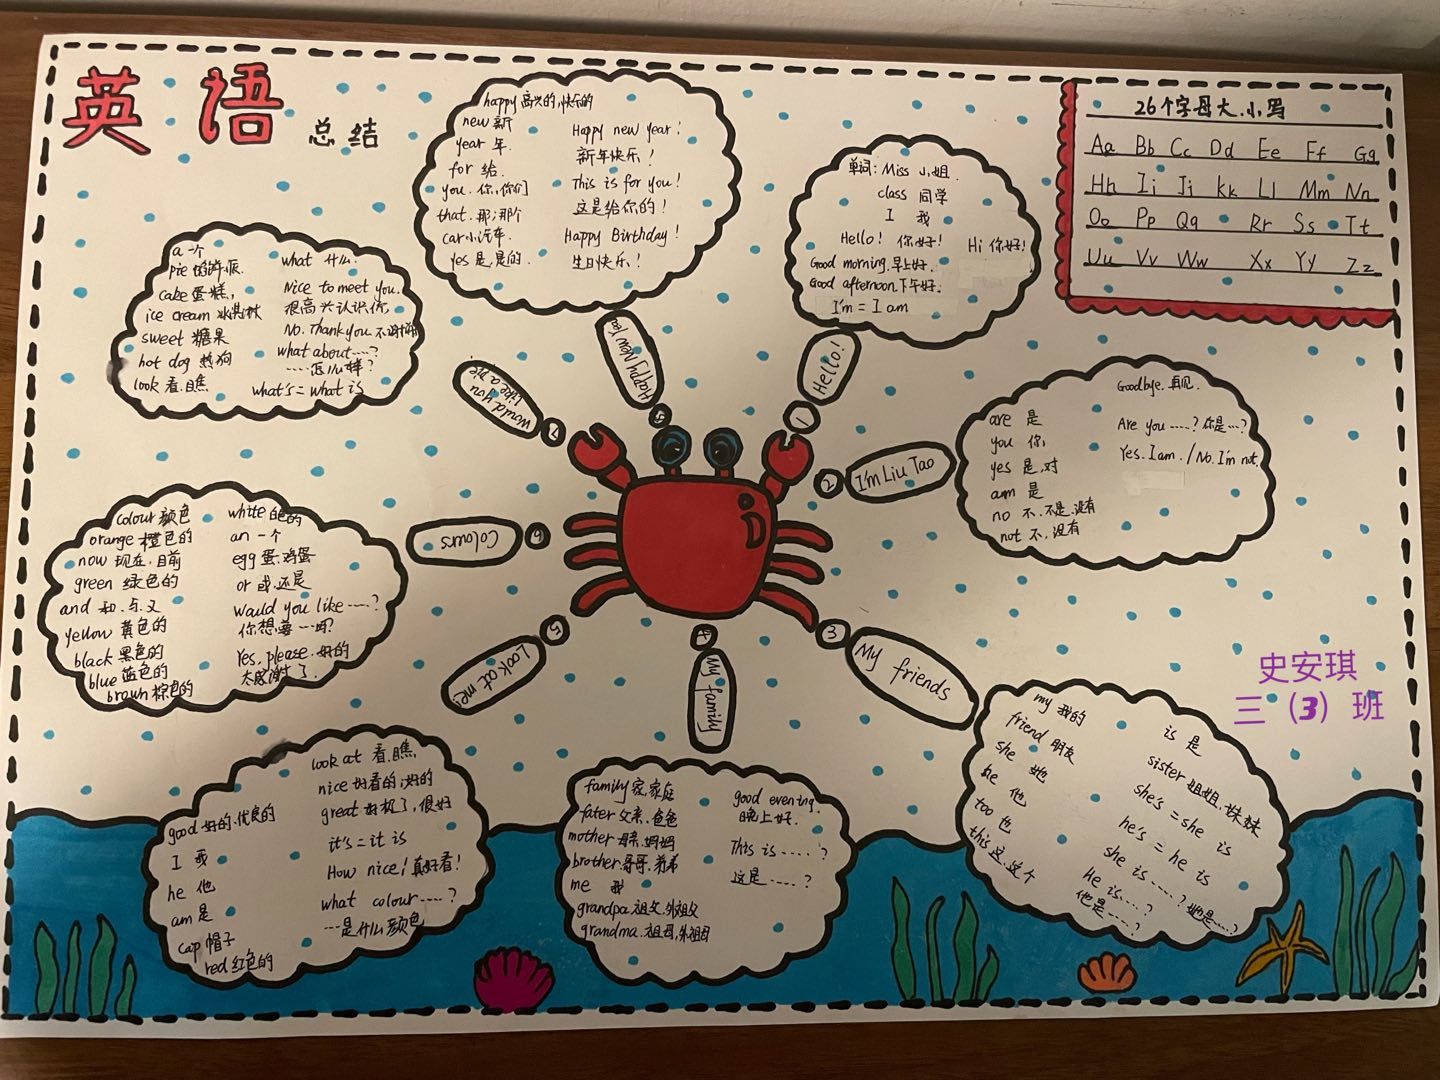 英语
总结
26个字母大.小写
Aa Bb Cc Dd Ee Ff Gg
Hh Ii Jj Kk Ll Mm Nn
Oo Pp Qq Rr Ss Tt
Uu Vv Ww Xx Yy Zz
Hello!
1
单词: Miss 小姐.
class 同学
I 我
Hello! 你好! Hi 你好!
Good morning.早上好.
Good afternoon.下午好.
I'm = I am
I'm Liu Tao
2
Goodbye.再见.
are 是
you 你
yes 是.对
am 是
no 不.不是.没有
not 不.没有
Are you ……?你是…?
Yes.I am./No.I'm not.
3
My friends
my 我的
friend 朋友
she 她
he 他
too 也
this 这.这个
is 是
sister 姐姐.妹妹
she's = she is
he's = he is
she is ……? 她是…?
He is……?
他是……?
4
My family
family 家.家庭
fater 父亲.爸爸
mother 母亲.妈妈
brother 哥哥.弟弟
me 我
grandpa.祖父.外祖父
grandma.祖母.外祖母
good evening.
晚上好.
This is ……?
这是……?
5
Look at me!
good 好的.优良的
I 我
he 他
am 是
cap 帽子
red 红色的
look at 看.瞧
nice 好看的;好的
great 好极了,很好
it's = it is
How nice! 真好看!
what colour……?
…是什么颜色
6
Colours
colour 颜色
orange 橙色的
now 现在.目前
green 绿色的
and 和.与.又
yellow 黄色的
black 黑色的
blue 蓝色的
brown 棕色的
white 白色的
an 一个
egg 蛋.鸡蛋
or 或.还是
would you like ……?
你想要…吗?
Yes,please.好的
太感谢了.
7
Would you
like a pie
a 一个
pie
cake 蛋糕,
ice cream 冰淇淋
sweet 糖果
hot dog 热狗
look 看.瞧
what 什么.
Nice to meet you.
很高兴认识你
No.Thank you 不谢谢
what about……?
……怎么样?
what's = what is
Happy New
happy 高兴的,快乐的
new 新
year 年.
for 给
you.你,你们
that.那;那个
car 小汽车.
yes 是,是的.
Happy new year!
新年快乐!
This is for you!
这是给你的!
Happy Birthday!
生日快乐!
史安琪
三（3）班